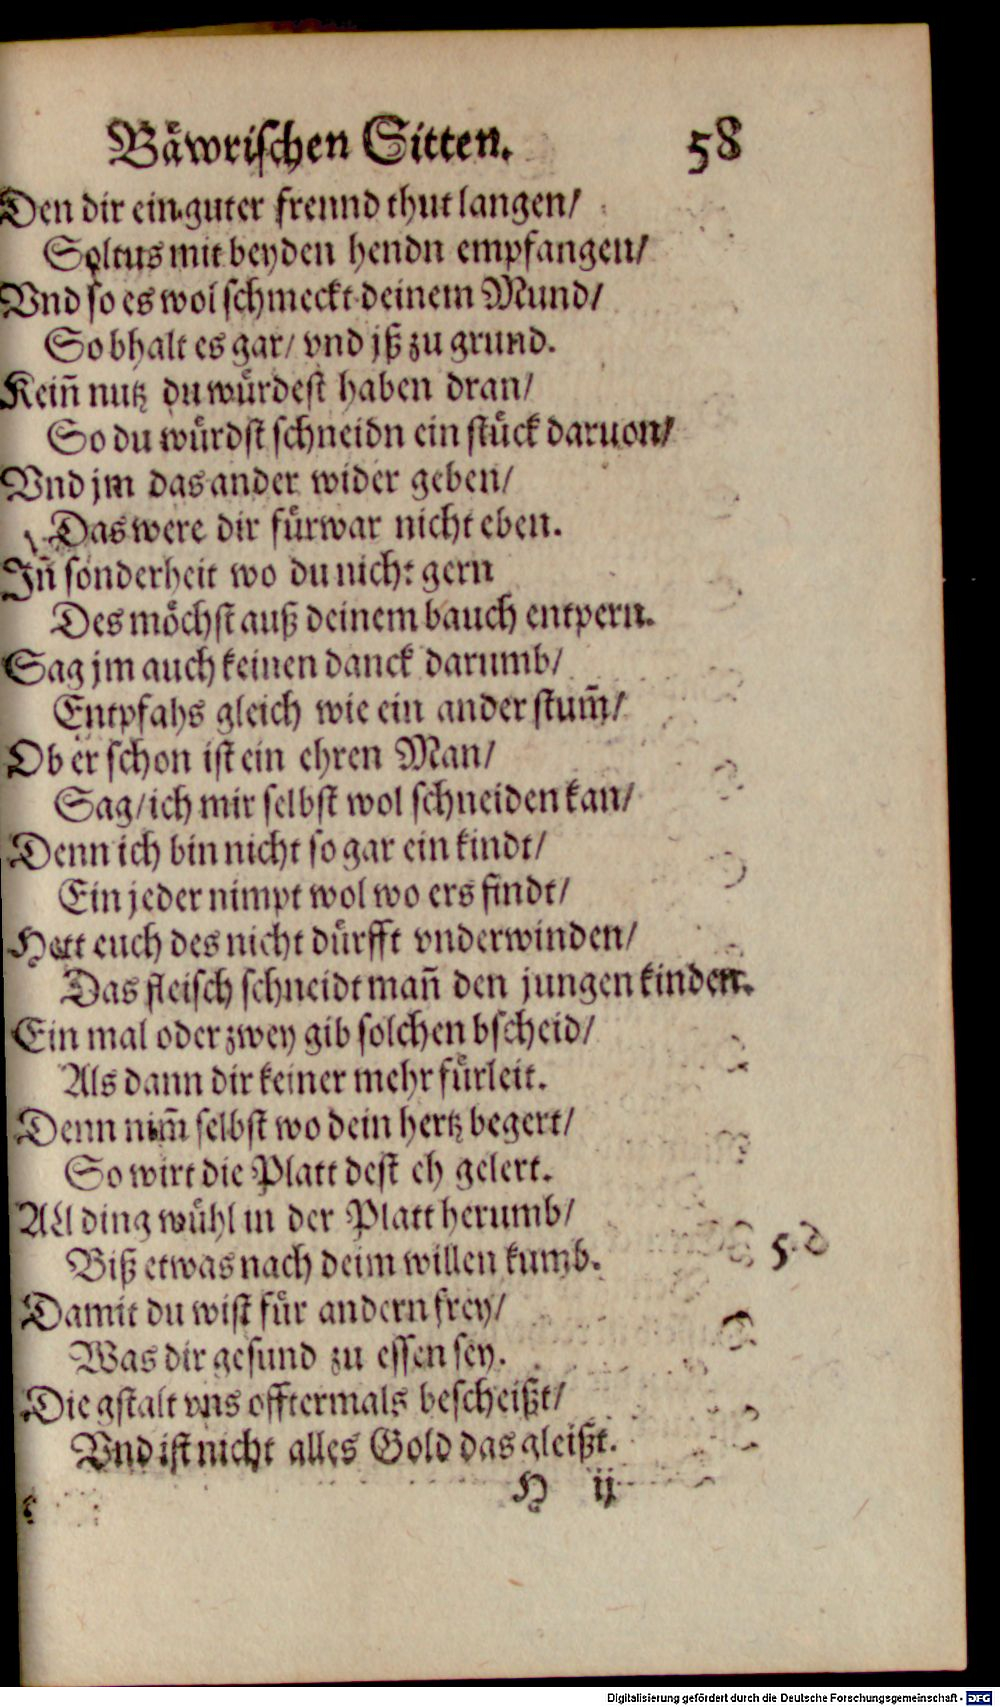 Bäwrischen Sitten. 58
Den dir ein guter freund thut langen/
Soltus mit beyden hendn empfangen/
Vnd so es wol schmeckt deinem Mund/
So bhalt es gar/ vnd jß zu grund.
Kein̄ nutz du würdest haben dran/
So du würdst schneidn ein stück daruon/
Vnd jm das ander wider geben/
Das were dir fürwar nicht eben.
In̄ sonderheit wo du nicht gern
Des möchst auß deinem bauch entpern.
Sag jm auch keinen danck darumb/
Entpfahs gleich wie ein ander stum̄/
Ob er schon ist ein ehren Man/
Sag/ ich mir selbst wol schneiden kan/
Denn ich bin nicht so gar ein kindt/
Ein jeder nimpt wol wo ers findt/
Hett euch des nicht dürfft vnderwinden/
Das fleisch schneidt man̄ den jungen kinden.
Ein mal oder zwey gib solchen bscheid/
Als dann dir keiner mehr fürleit.
Denn nim̄ selbst wo dein hertz begert/
So wirt die Platt dest eh gelert.
All ding wühl in der Platt herumb/
Biß etwas nach deim willen kumb.
Damit du wist für andern frey/
Was dir gesund zu essen sey.
Die gstalt vns offtermals bescheißt/
Vnd ist nicht alles Gold das gleißt.
H ij
Digitalisierung gefördert durch die Deutsche Forschungsgemeinschaft - DFG